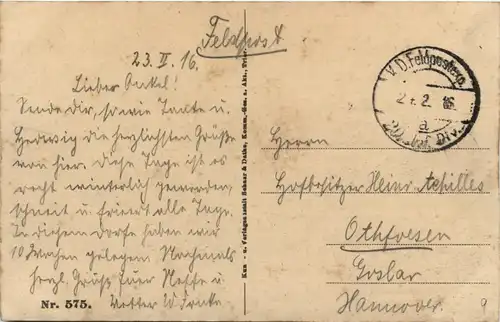 Feldpost
23. II. 16.
Lieber Onkel!
Sende dir, sowie Tante u.
Hedwig die herzlichsten Grüße
von hier. Diese Tage ist es
recht winterlich geworden,
schneit u. friert alle Tage.
In diesem Dorfe haben wir
10 Wochen gelegen. Nochmals
herzl. Gruß Euer Neffe u.
Vetter W.
Nr. 575.
Kun - u. Verlagsanstalt & Dathe, Komm.-Ges. a. Akt., Trier.
K. D. Feldpostexp.
2 .2. 16
a
Div.
Herrn
Hofbesitzer Heinr. Achilles
Othfresen
Goslar
Hannover.
9